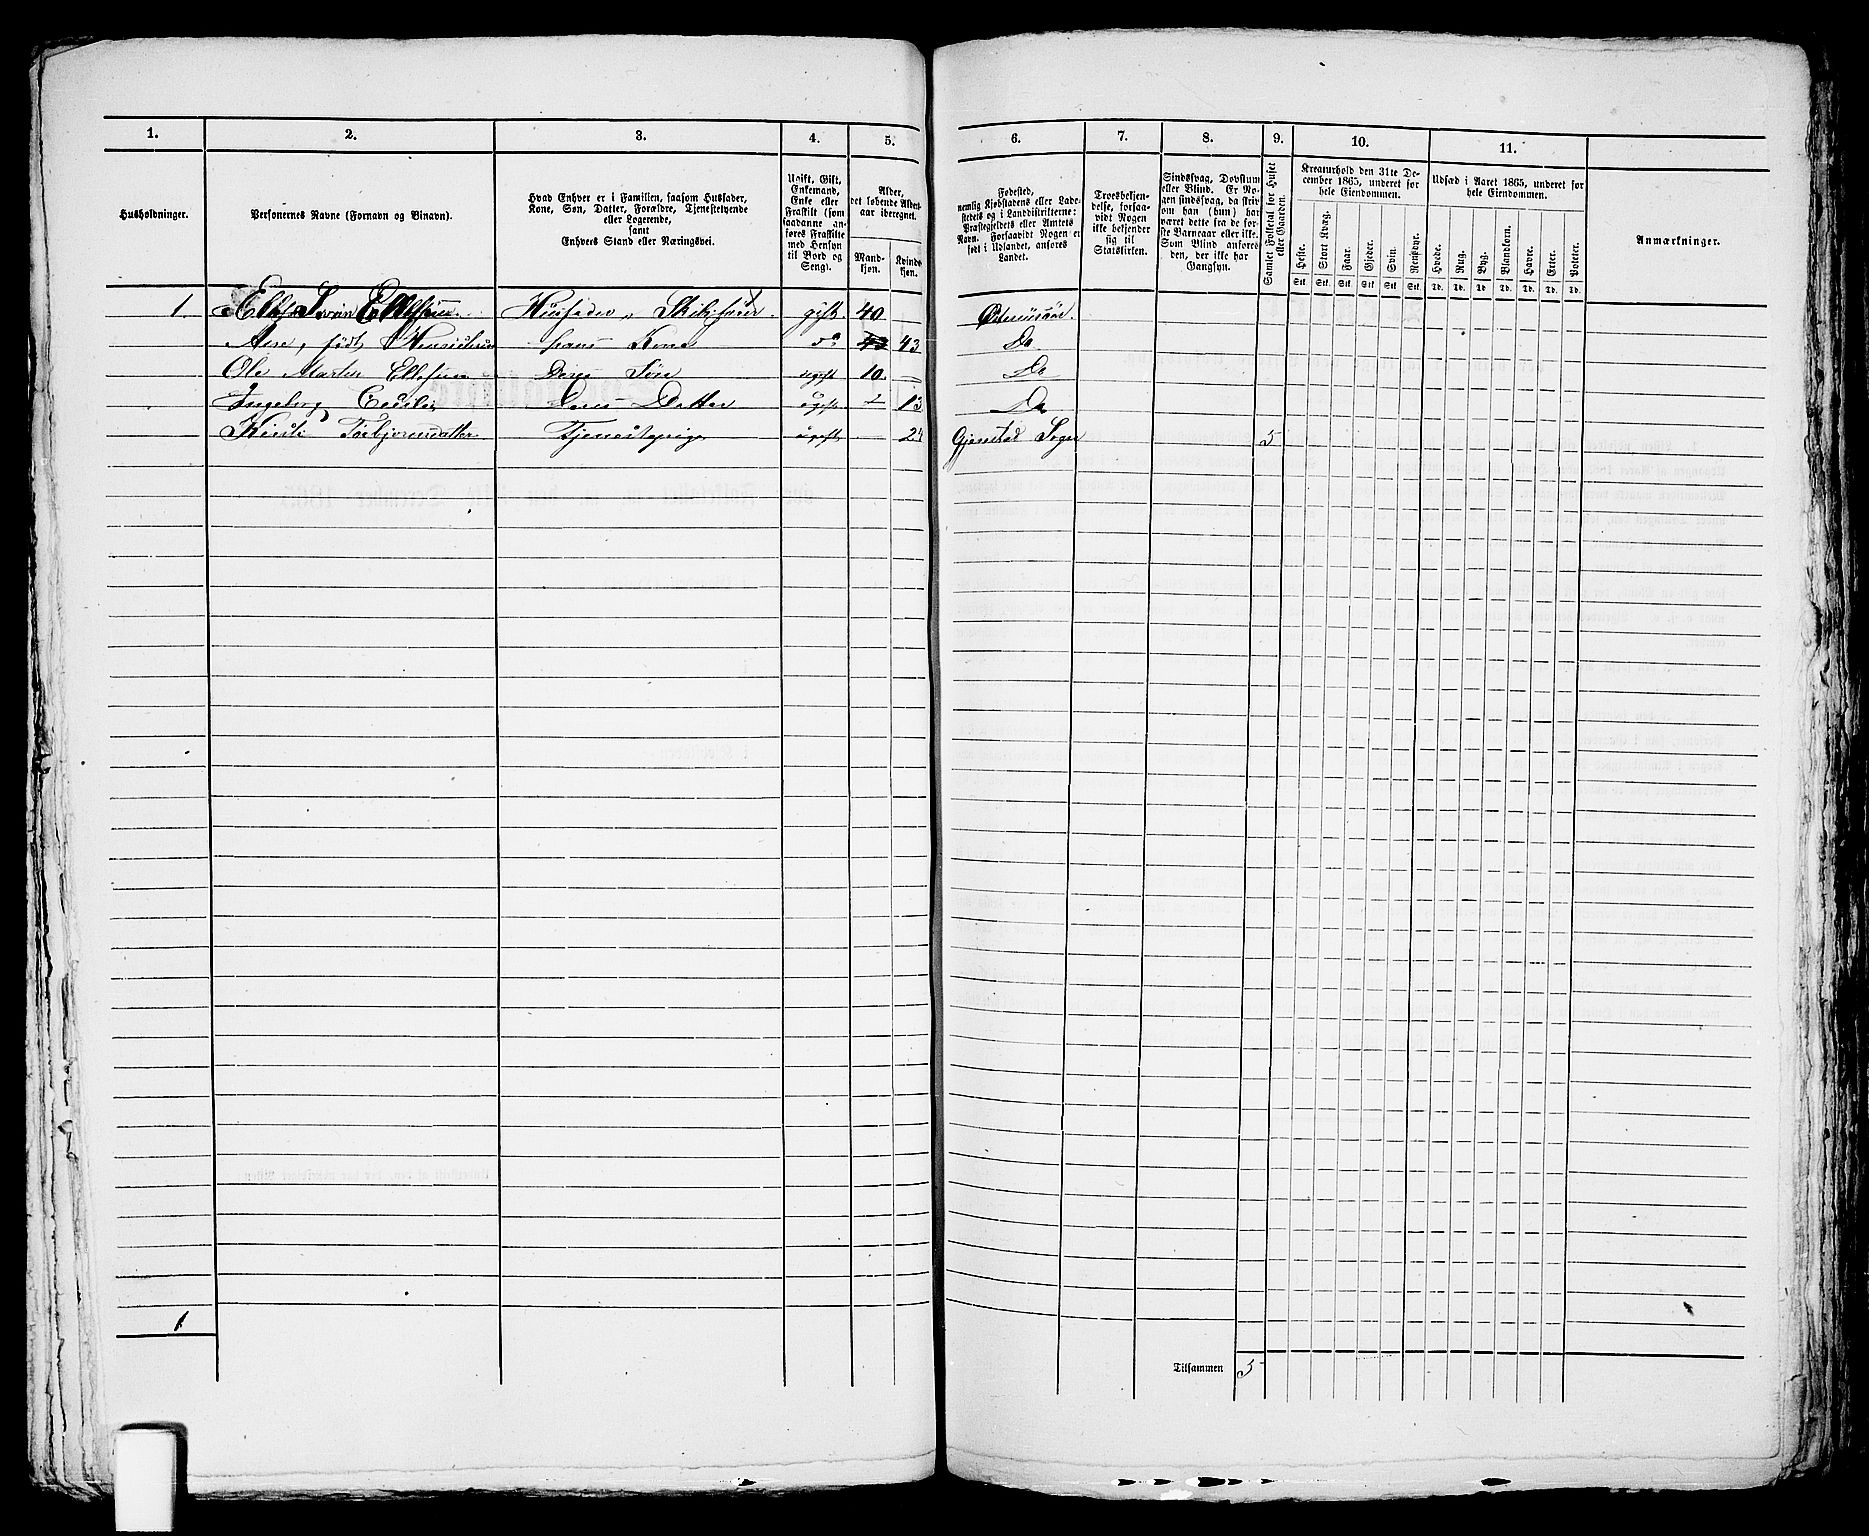 1.
2.
3.
4.
5.
6.
7.
8.
9.
10.
11.
Husholdninger.
Personernes Navne (Fornavn og Binavn).
Hvad Enhver er i Familien, saasom Husfader,
Kone, Søn, Datter, Forældre, Tjenestetyende
eller Logerende,
samt
Enhvers Stand eller Næringsvei.
Ugift, Gift,
Enkemand,
Enke eller
Fraskilt (som
saadanne an-
føres Fraskilte
med Hensyn
til Bord og
Seng).
Alder,
det løbende Alders-
aar iberegnet.
Mand-
kjøn.
Kvinde-
kjøn.
Fødested,
nemlig Kjøbstadens eller Lade-
stedets og i Landdistrikterne:
Præstegjeldets eller Amtets
Navn. Forsaavidt Nogen er
født i Udlandet, anføres
Landet.
Troesbekjen-
delse, forsaa-
vidt Nogen
ikke bekjender
sig til
Statskirken.
Sindssvag, Døvstum
eller Blind. Er No-
gen sindssvag, da skriv
om han (hun) har
været dette fra de før-
ste Barneaar eller ikke.
Som Blind anføres
den, der ikke har
Gangsyn.
Samlet Folketal for Huset
eller Gaarden.
Kreaturhold den 31te De-
cember 1865, underet for
hele Eiendommen.
Heste.
Stort Kvæg.
Faar.
Gjeder.
Svin.
Rensdyr.
Stk.
Stk.
Stk.
Stk.
Stk.
Stk.
Udsæd i Aaret 1865, underet for
hele Eiendommen.
Hvede.
Rug.
Byg.
Blandkorn.
Havre.
Erter.
Poteter.
Td.
Td.
Td.
Td.
Td.
Td.
Td.
Anmærkninger.
1. Ellefsen Husfader, gift 40
Ane, født hans Kone do 43 Do
Ole Martin Ellefsen Deres Søn ugift 10 Do
Ingeborg Deres Datter ugift 13 Do
Torbjørnsdatter Tjenestepige ugift 24 Gjerestad Sogn 5
1
Tilsammen 5